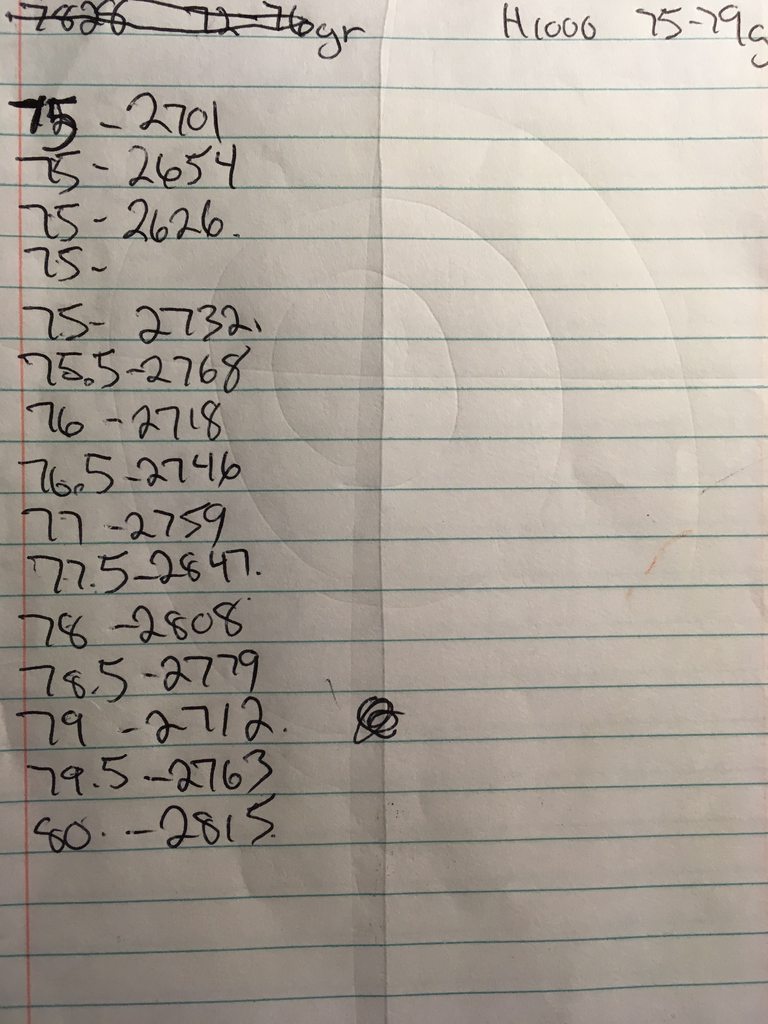 7828 72-76gr H1000 75-79g
75 - 2701
75 - 2654
75 - 2626.
75 -
75 - 2732.
75.5 - 2768
76 - 2718
76.5 - 2746
77 - 2759
77.5 - 2847.
78 - 2808
78.5 - 2779
79 - 2712.
79.5 - 2763
80. - 2815